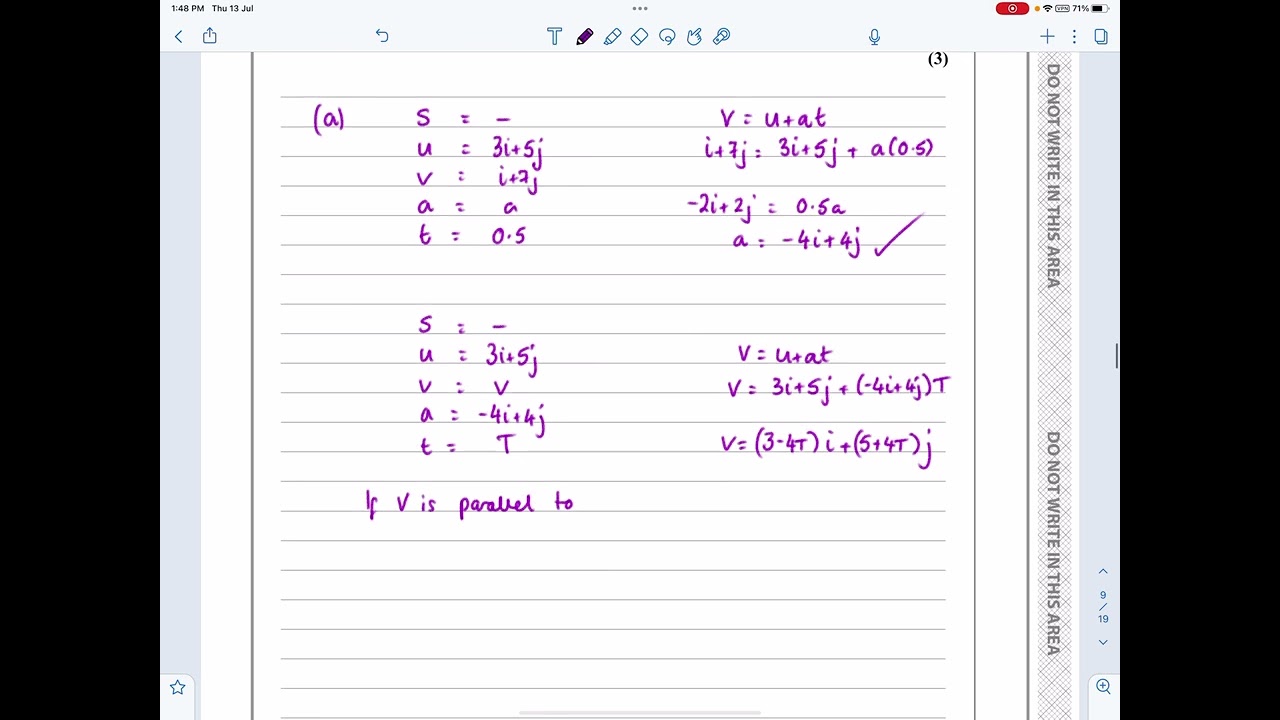 1:48 PM Thu 13 Jul
VPN 71%
T
(3)
(a) S = - V = u+at
u = 3i+5j i+7j = 3i+5j + a(0.5)
v = i+7j
a = a -2i+2j = 0.5a
t = 0.5 a = -4i+4j ✓
S = -
u = 3i+5j V = u+at
v = v V = 3i+5j + (-4i+4j)T
a = -4i+4j
t = T V = (3-4T)i+(5+4T)j
If V is parallel to
DO NOT WRITE IN THIS AREA
DO NOT WRITE IN THIS AREA
9
/
19